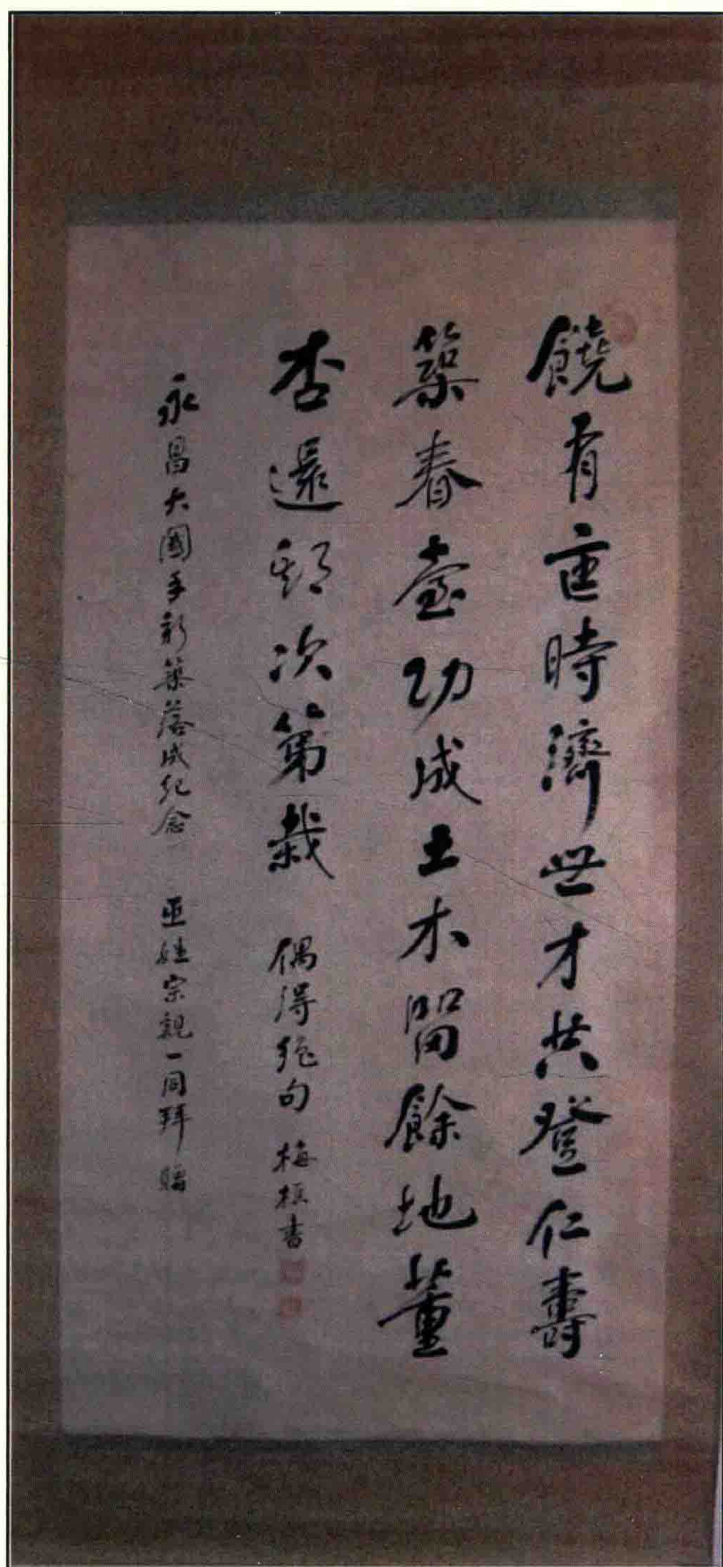 饒有匡時濟世才共登仁壽
築春臺功成土木留餘地董
杏還期次第栽 偶得絕句 梅樵書
永昌大國手新築落成紀念 巫姓宗親一同拜贈